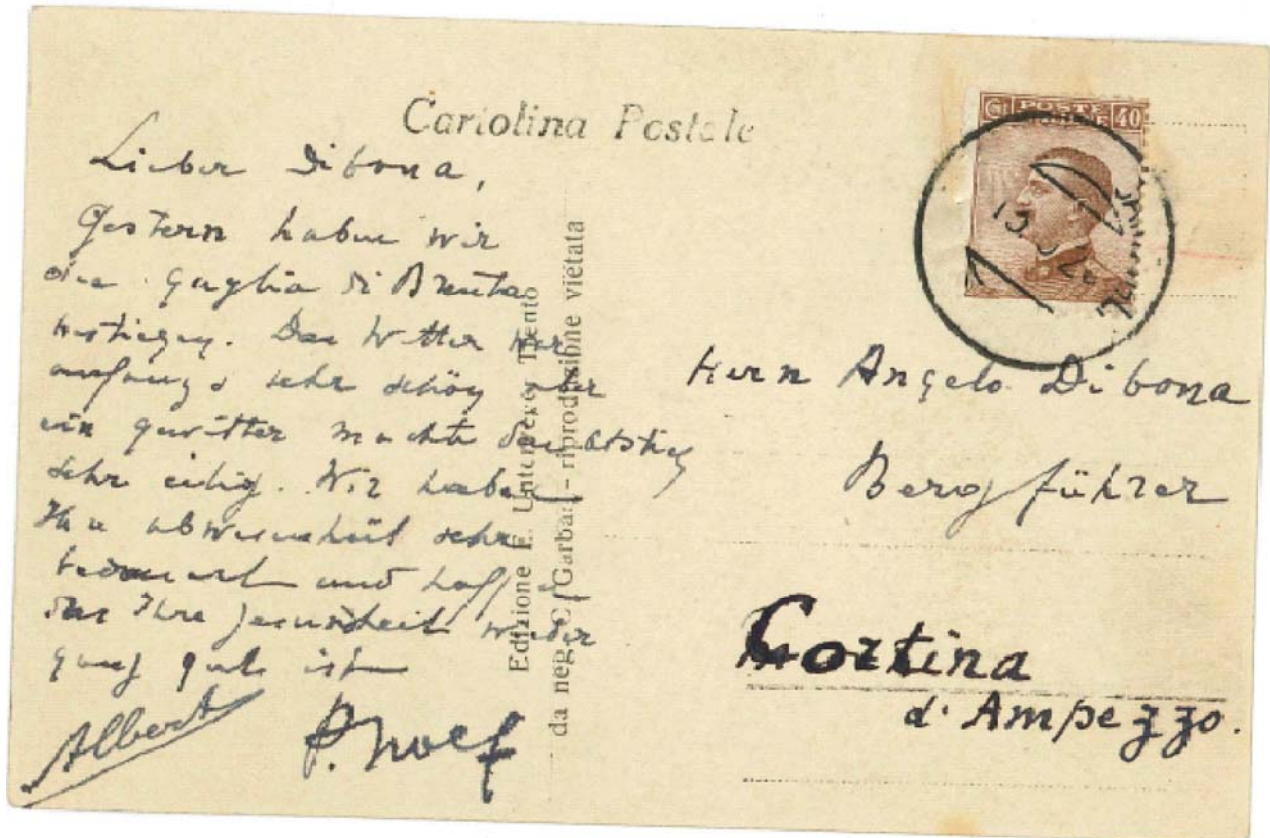 Cartolina Postale
Lieber Dibona,
Gestern haben wir
die Guglia di Brenta
bestiegen. Das Wetter war
anfangs sehr schön aber
ein Gewitter machte den Abstieg
sehr eilig. Wir haben
Ihre abwesenheit sehr
bedauert und hoffen
das Ihre Gesundheit wieder
ganz gut ist
Albert
Edizione E. Unterveger, Trento
da neg. C. Garbari - riproduzione vietata
POSTE
40
Herrn Angelo Dibona
Bergführer
Cortina
d'Ampezzo.